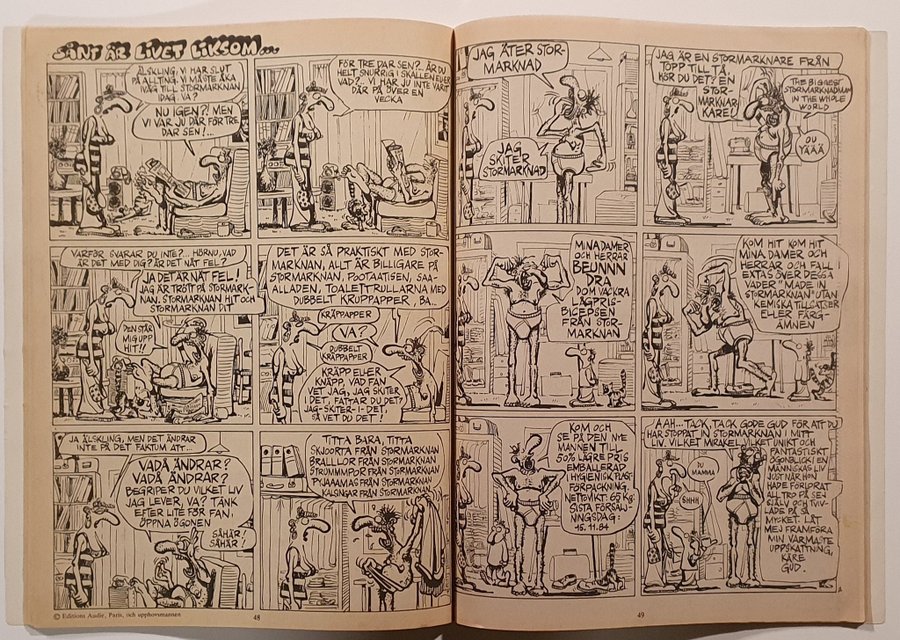 SÅNT ÄR LIVET LIKSOM...
ÄLSKLING, VI HAR SLUT
PÅ ALLTING. VI MÅSTE ÅKA
IVÄG TILL STORMARKNAN
IDAG. VA?
NU IGEN?! MEN
VI VAR JU DÄR FÖR TRE
DAR SEN!...
FÖR TRE DAR SEN?. ÄR DU
HELT SNURRIG I SKALLEN ELLER
VAD?. VI HAR JU INTE VARIT
DÄR PÅ ÖVER EN
VECKA
VARFÖR SVARAR DU INTE?... HÖRNU, VAD
ÄR DET MED DIG? ÄR DET NÅT FEL?
JA DET ÄR NÅT FEL!
JAG ÄR TRÖTT PÅ STORMARK-
NAN, STORMARKNAN HIT OCH
STORMARKNAN DIT
DEN STÅR
MIG UPP
HIT!!
DET ÄR SÅ PRAKTISKT MED STOR-
MARKNAN, ALLT ÄR BILLIGARE PÅ
STORMARKNAN, POTAATISEN, SAA-
ALLADEN, TOALETTRULLARNA MED
DUBBELT KRUPPAPPER, BA..
KRÄPPAPPER
VA?
DUBBELT
KRÄPPAPPER
KRÄPP ELLER
KNÄPP, VAD FAN
VET JAG, JAG SKITER
I DET. FATTAR DU DET?
JAG-SKITER-I-DET,
SÅ VET DU DET!
JA ÄLSKLING, MEN DET ÄNDRAR
INTE PÅ DET FAKTUM ATT...
VADÅ ÄNDRAR?
VADÅ ÄNDRAR?
BEGRIPER DU VILKET LIV
JAG LEVER, VA? TÄNK
EFTER LITE FÖR FAN.
ÖPPNA ÖGONEN
SÅHÄR!
SÅHÄR!
TITTA BARA, TITTA
SKJOORTA FRÅN STORMARKNAN
BRALLLOR FRÅN STORMARKNAN
STRUMMMPOR FRÅN STORMARKNAN
PYJAAAMAS FRÅN STORMARKNAN
KALSINGAR FRÅN STORMARKNAN
© Editions Audie, Paris, och upphovsmannen
48
JAG ÄTER STOR-
MARKNAD
JAG
SKITER
STORMARKNAD
JAG ÄR EN STORMARKNARE FRÅN
TOPP TILL TÅ.
HÖR DU DET? EN
STOR-
MARKNAR-
KARE!
THE BIGGEST
STORMARKNADMAN
IN THE WHOLE
WORLD
OU
YÄÄÄ
MINA DAMER
OCH HERRAR
BEUNNN
DRA
DOM VACKRA
LÅGPRIS-
BICEPSEN
FRÅN STOR-
MARKNAN
KOM HIT KOM HIT
MINA DAMER OCH
HERRAR OCH FALL I
EXTAS ÖVER DESSA
VADER "MADE IN
STORMARKNAN" UTAN
KEMISKA TILLSATSER
ELLER FÄRG-
ÄMNEN
KOM OCH
SE PÅ DEN NYE
MANNEN TILL
50% LÄGRE PRIS
EMBALLERAD
I HYGIENISK PLAST-
FÖRPACKNING.
NETTOVIKT: 65 KG.
SISTA FÖRSÄLJ-
NINGSDAG:
15.11.84
AAH... TACK, TACK GODE GUD FÖR ATT DU
HAR STOPPAT IN STORMARKNAN I MITT
LIV. VILKET MIRAKEL, VILKET UNIKT OCH
FANTASTISKT
ÖGONBLICK I EN
MÄNNISKAS LIV
JUST NÄR HON
HADE FÖRLORAT
ALL TRO PÅ SEJ
SJÄLV OCH TVIV-
LADE PÅ SÅ
MYCKET. LÅT
MEJ FRAMFÖRA
MIN VARMASTE
UPPSKATTNING,
KÄRE
GUD.
MAMMA
SHHH
49